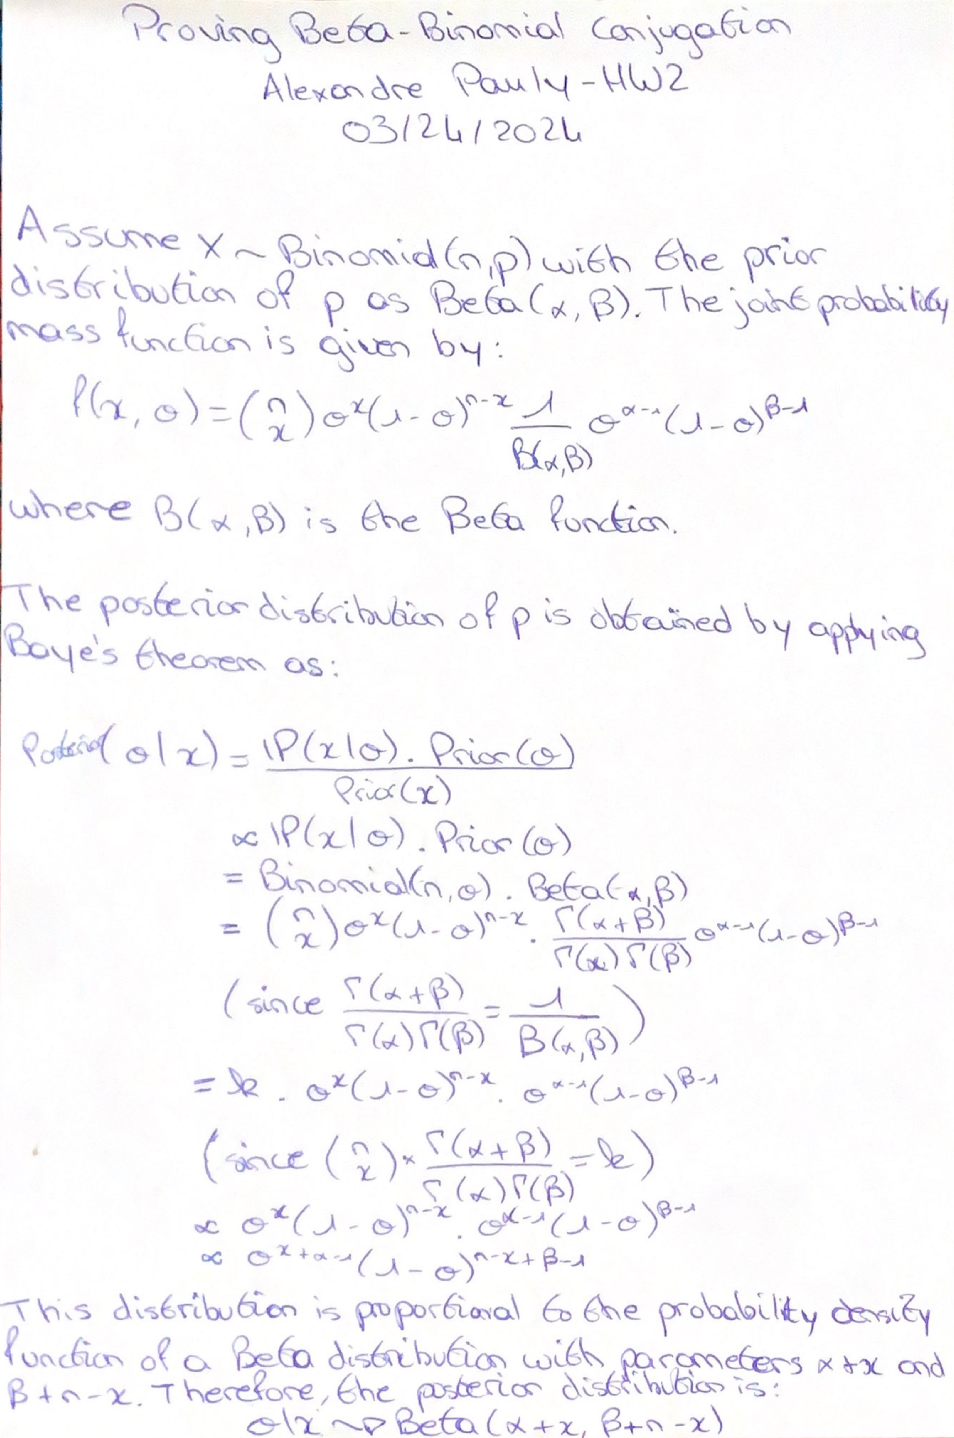 Proving Beta-Binomial Conjugation
Alexandre Pauly-HW2
03/24/2024
Assume X ~ Binomial(n,p) with the prior
distribution of p as Beta(α, β). The joint probability
mass function is given by:
f(x, θ) = (n x) θ^x (1-θ)^{n-x} 1/B(α,β) θ^{α-1} (1-θ)^{β-1}
where B(α,β) is the Beta function.
The posterior distribution of p is obtained by applying
Baye's theorem as:
Posterior(θ|x) = ℙ(x|θ) . Prior(θ) / Prior(x)
∝ ℙ(x|θ) . Prior(θ)
= Binomial(n,θ) . Beta(α,β)
= (n x) θ^x (1-θ)^{n-x} . Γ(α+β)/Γ(α)Γ(β) θ^{α-1} (1-θ)^{β-1}
(since Γ(α+β)/Γ(α)Γ(β) = 1/B(α,β))
= k . θ^x (1-θ)^{n-x} . θ^{α-1} (1-θ)^{β-1}
(since (n x) × Γ(α+β)/Γ(α)Γ(β) = k)
∝ θ^x (1-θ)^{n-x} . θ^{α-1} (1-θ)^{β-1}
∝ θ^{x+α-1} (1-θ)^{n-x+β-1}
This distribution is proportional to the probability density
function of a Beta distribution with parameters α+x and
β+n-x. Therefore, the posterior distribution is:
θ|x ~> Beta(α+x, β+n-x)